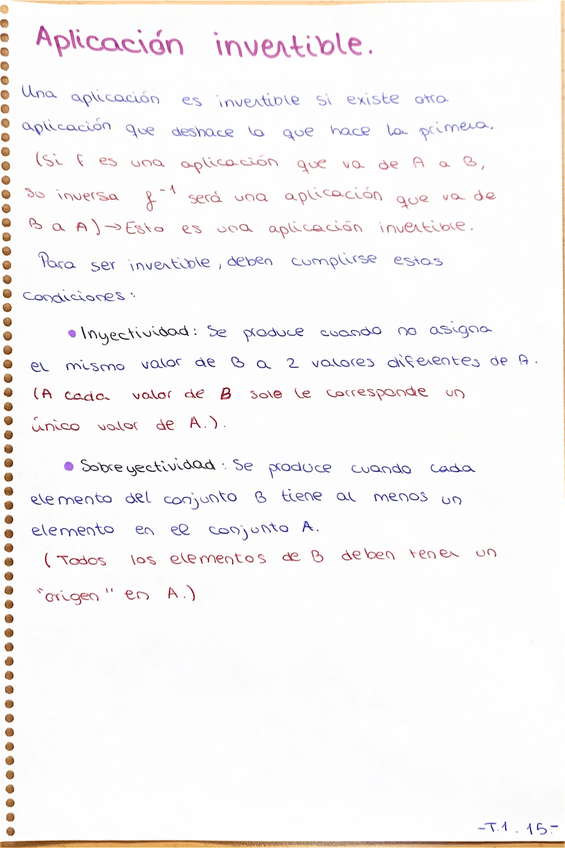 Aplicación invertible.
Una aplicación es invertible si existe otra
aplicación que deshace lo que hace la primera.
(Si f es una aplicación que va de A a B,
su inversa f⁻¹ será una aplicación que va de
B a A) → Esto es una aplicación invertible.
Para ser invertible, deben cumplirse estas
condiciones:
• Inyectividad: Se produce cuando no asigna
el mismo valor de B a 2 valores diferentes de A.
(A cada valor de B solo le corresponde un
único valor de A.).
• Sobreyectividad: Se produce cuando cada
elemento del conjunto B tiene al menos un
elemento en el conjunto A.
(Todos los elementos de B deben tener un
"origen" en A.)
-T.1. 15-